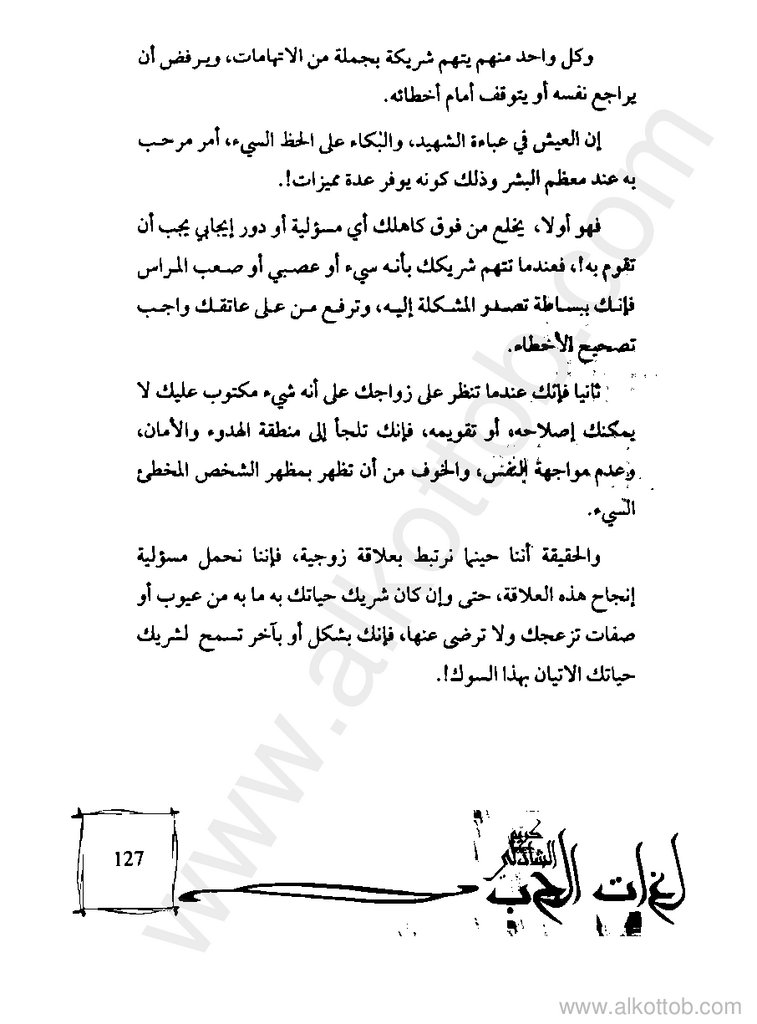 وكل واحد منهم يتهم شريكة بجملة من الاتهامات، ويرفض أن
يراجع نفسه أو يتوقف أمام أخطائه.
إن العيش في عباءة الشهيد، والبكاء على الحظ السيء، أمر مرحب
به عند معظم البشر وذلك كونه يوفر عدة مميزات!.
فهو أولا، يخلع من فوق كاهلك أي مسؤلية أو دور إيجابي يجب أن
تقوم به!، فعندما تتهم شريكك بأنه سيء أو عصبي أو صعب المراس
فإنك ببساطة تصدو المشكلة إليه، وترفع من على عاتقك واجب
تصحيح الأخطاء.
ثانيا فإنك عندما تنظر على زواجك على أنه شيء مكتوب عليك لا
يمكنك إصلاحه، أو تقويمه، فإنك تلجأ إلى منطقة الهدوء والأمان،
وعدم مواجهة النفس، والخوف من أن تظهر بمظهر الشخص المخطئ
السيء.
والحقيقة أننا حينما نرتبط بعلاقة زوجية، فإننا نحمل مسؤلية
إنجاح هذه العلاقة، حتى وإن كان شريك حياتك به ما به من عيوب أو
صفات تزعجك ولا ترضى عنها، فإنك بشكل أو بآخر تسمح لشريك
حياتك الاتيان بهذا السوك!.
كريم
الشاذلي
لغات الحب
127
www.alkottob.com
www.alkottob.com